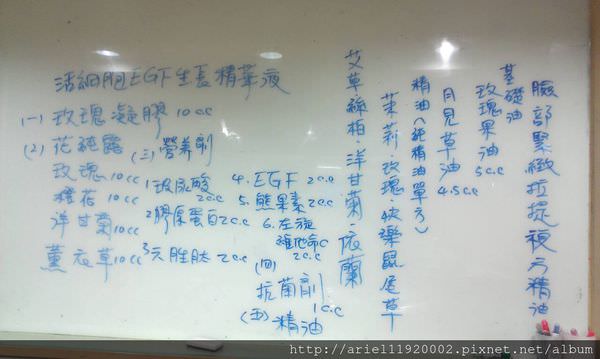 臉部緊緻拉提複方精油
基礎油
玫瑰果油 5c.c
月見草油 4.5c.c
精油(純精油單方)
茉莉、玫瑰、快樂鼠尾草
艾草絲柏、洋甘菊、依蘭
活細胞EGF生長精華液
(一) 玫瑰凝膠 10cc
(2) 花純露
玫瑰 10cc
橙花 10cc
洋甘菊 10cc
薰衣草 10cc
(三) 營養劑
1玻尿酸 2c.c
2膠原蛋白 2c.c
3六胜肽 2c.c
4. EGF 2c.c
5. 熊果素 2c.c
6. 左旋維他命C 2c.c
(四) 抗菌劑 1c.c
(五) 精油
http://ariel11920002.pixnet.net/album